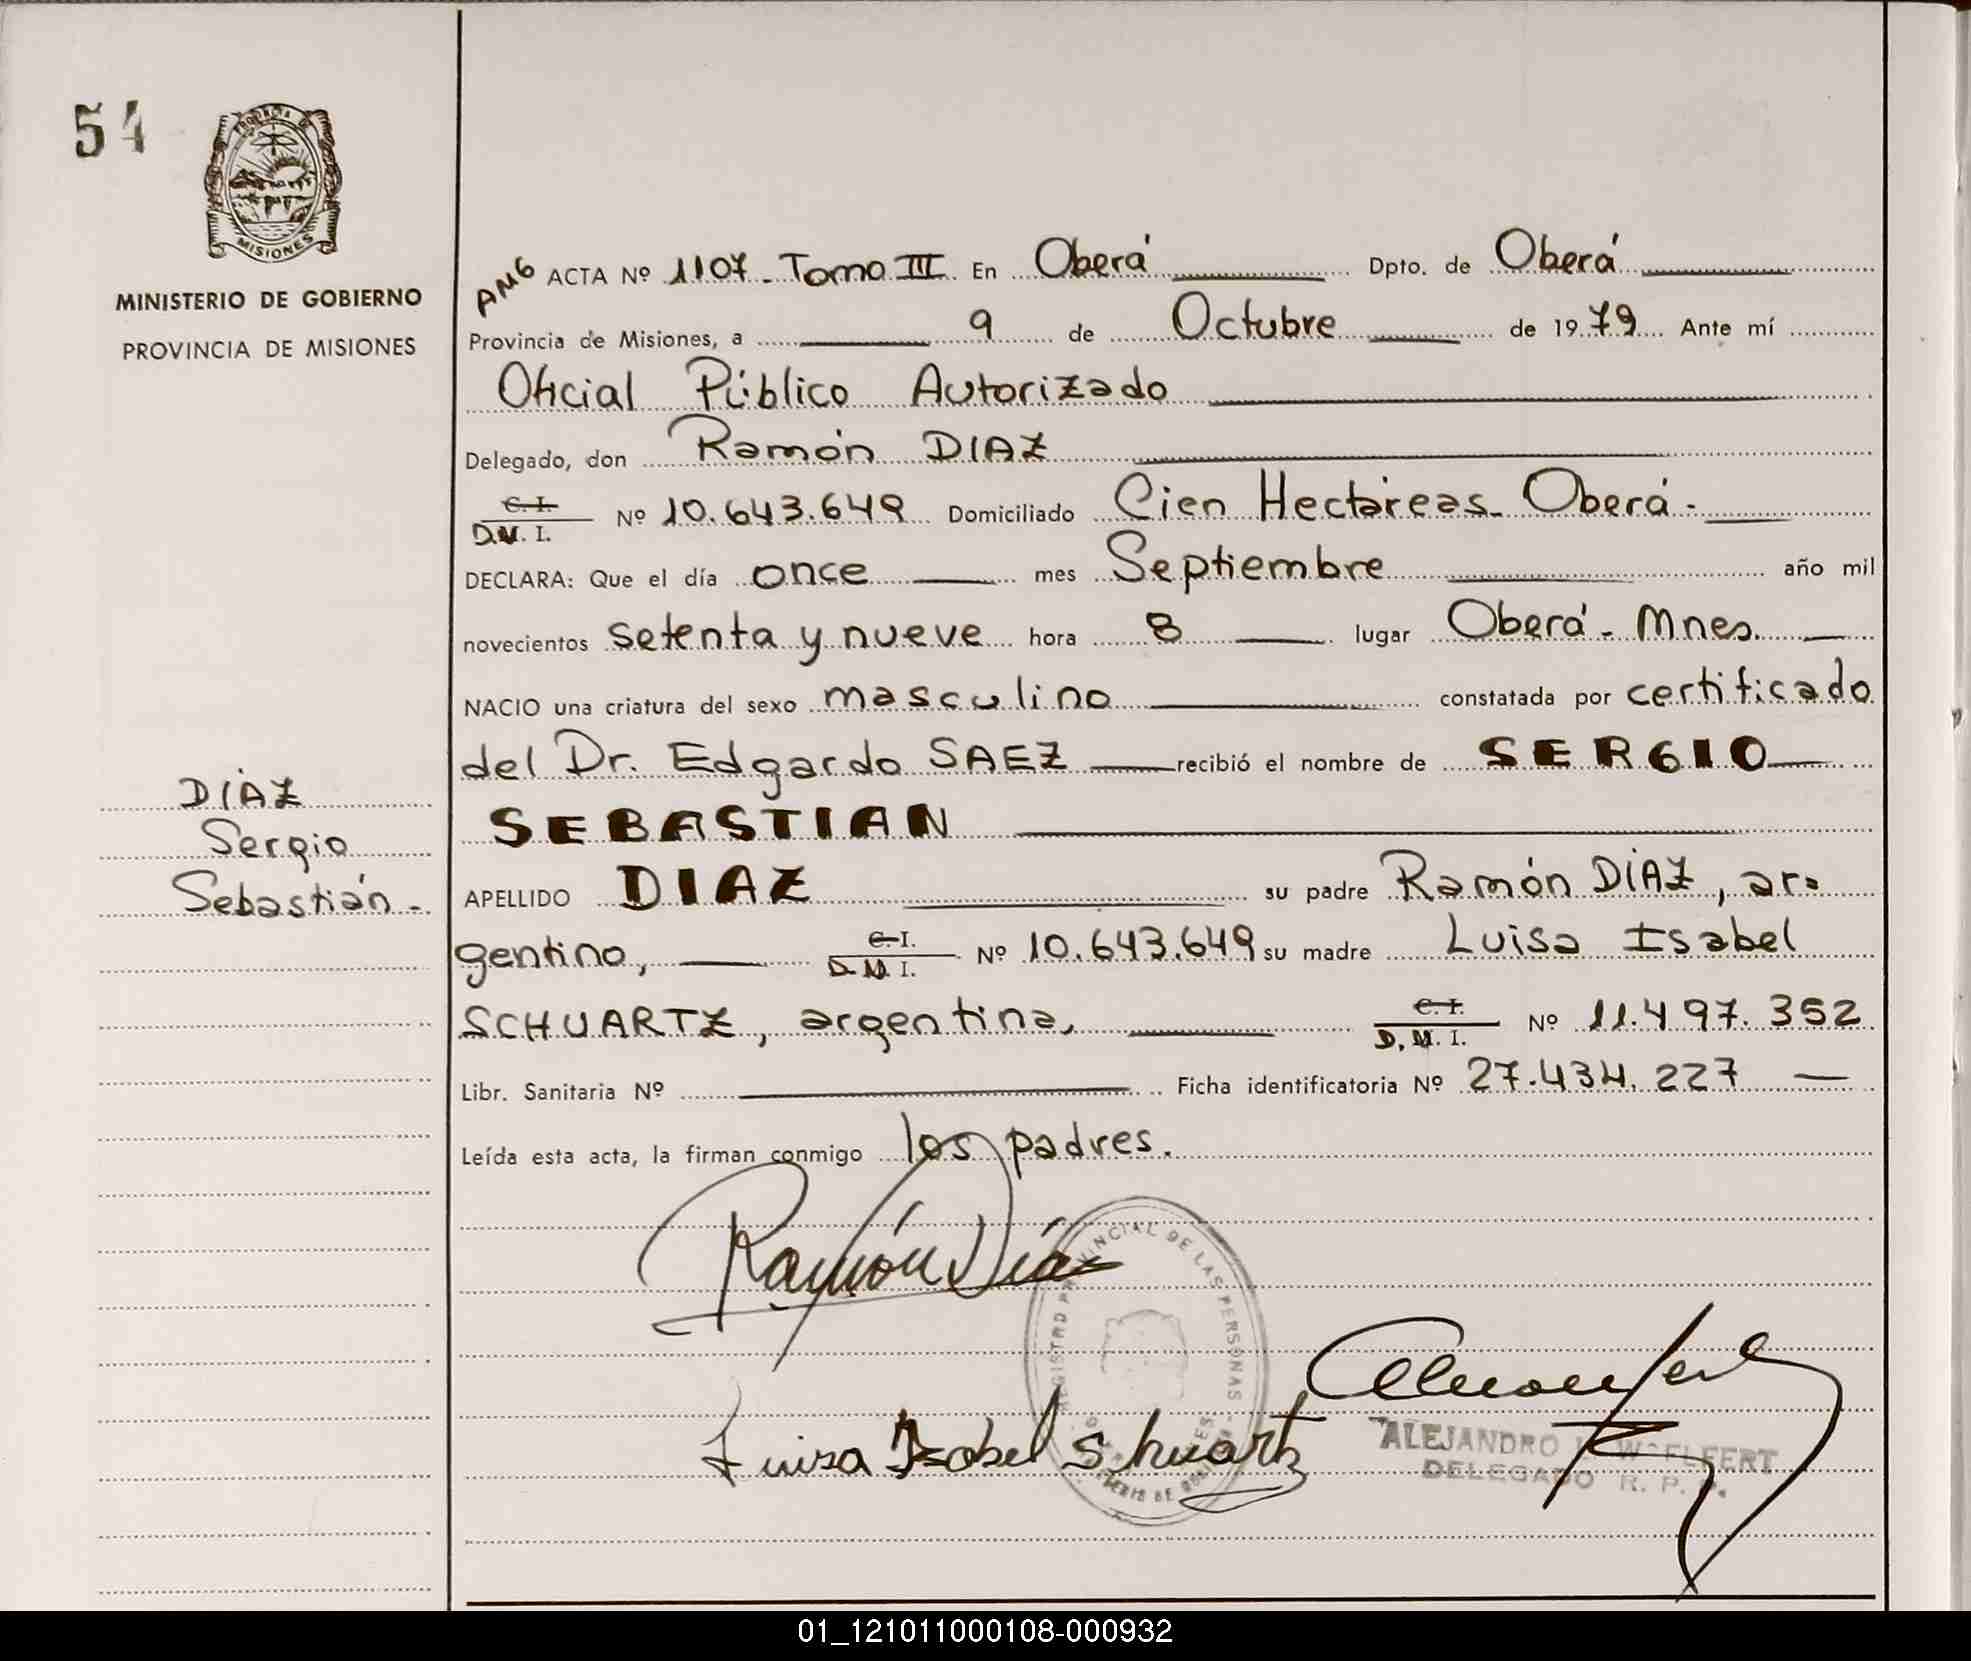 54
PROVINCIA DE
MISIONES
MINISTERIO DE GOBIERNO
PROVINCIA DE MISIONES
DÍAZ
Sergio
Sebastián.-
AMG ACTA Nº 1107 - Tomo III En Oberá Dpto. de Oberá
Provincia de Misiones, a 9 de Octubre de 1979 Ante mí
Oficial Público Autorizado
Delegado, don Ramón DIAZ
C. I.
D.N. I. Nº 10.643.649 Domiciliado Cien Hectáreas - Oberá -
DECLARA: Que el día once mes Septiembre año mil
novecientos setenta y nueve hora 8 lugar Oberá - Mnes.
NACIO una criatura del sexo masculino constatada por certificado
del Dr. Edgardo SAEZ recibió el nombre de SERGIO
SEBASTIAN
APELLIDO DIAZ su padre Ramón DÍAZ, ar=
gentino, C. I.
D. N. I. Nº 10.643.649 su madre Luisa Isabel
SCHUARTZ, argentina, C. I.
D. N. I. Nº 11.497.352
Libr. Sanitaria Nº Ficha identificatoria Nº 27.434.227
Leída esta acta, la firman conmigo los padres.
Ramón Díaz
REGISTRO PROVINCIAL DE LAS PERSONAS
Luisa Isabel Shuartz
ALEJANDRO WOELFERT
DELEGADO R. P. P.
01_121011000108-000932